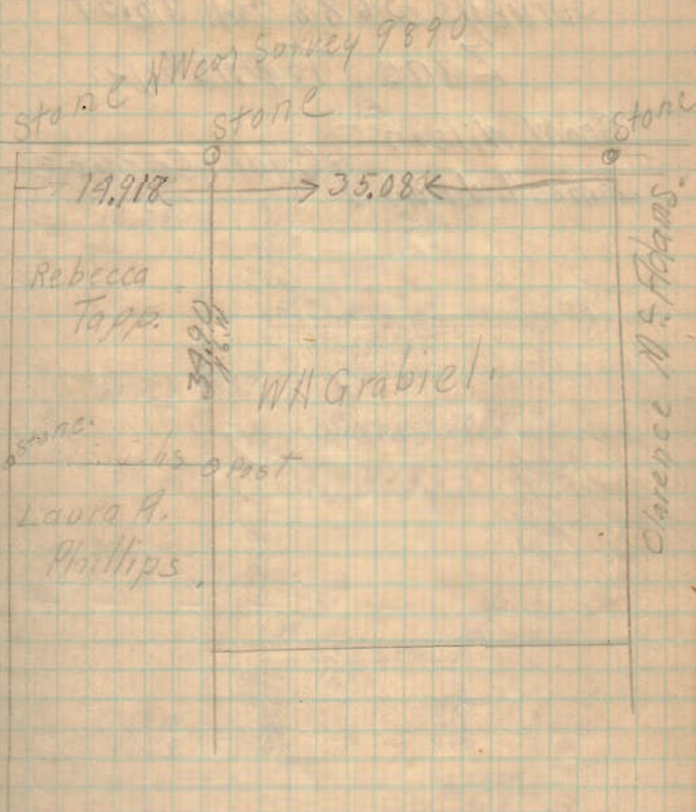 Stone NW cor Survey 9890
Stone
Stone
14.918
35.08
Rebecca
Tapp.
34.90
WH Grabiel.
Clarence McAdams.
Stone.
Post
Laura A.
Phillips